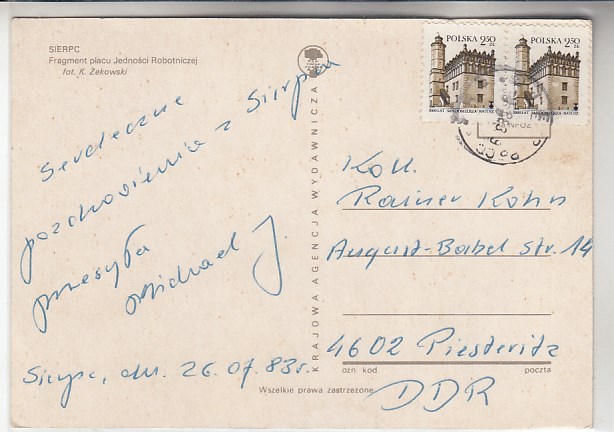 SIERPC
Fragment placu Jedności Robotniczej
fot. K. Żekowski
Serdeczne
pozdrowienia z Sierpca
przesyła
Michael J.
Sierpc, dn. 26.07.83r.
KRAJOWA AGENCJA WYDAWNICZA
Wszelkie prawa zastrzeżone
POLSKA 2,50 zł
POLSKA 2,50 zł
Koll.
Rainer Kohn
August-Babel str. 14
4602 Piesteritz
ozn. kod poczta
DDR